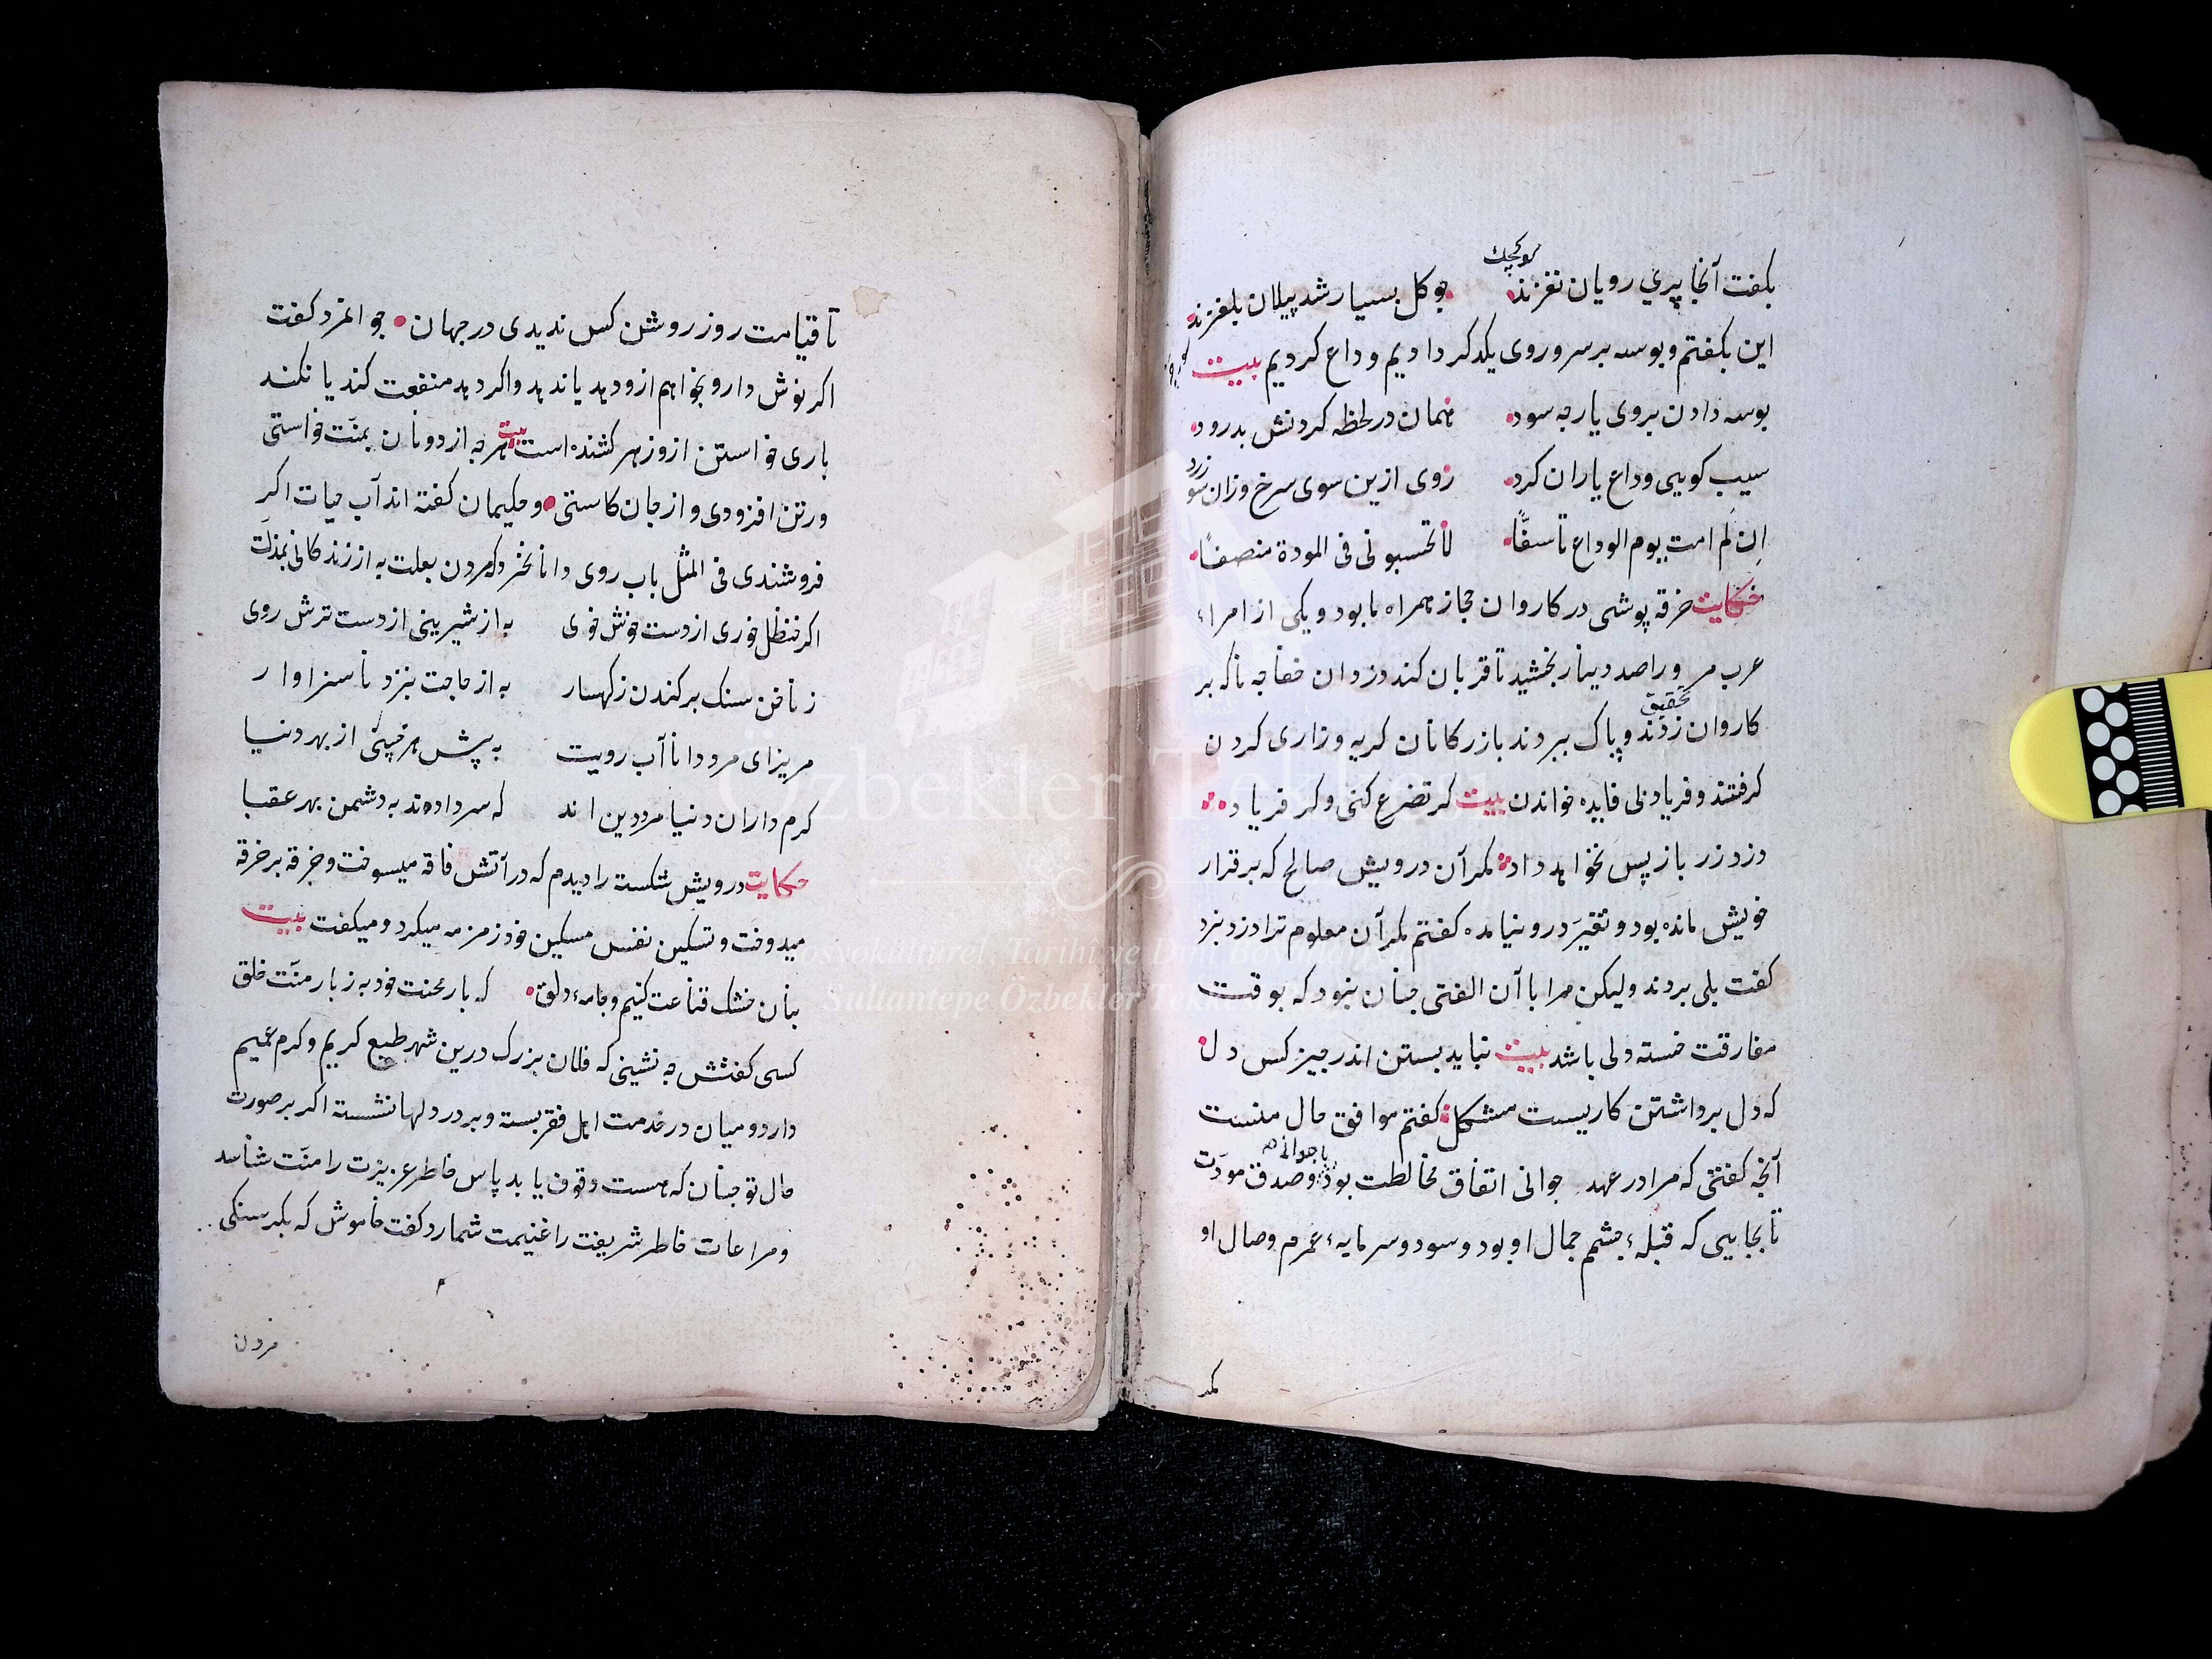 کوچک
بکفت آنجا پري رویان نغزند چو کل بسیار شد پیلان بلغزند
این بکفتم و بوسه بر سر و روی یکدکر دادیم و وداع کردیم بیت
بوسه دادن بروی یار چه سود همان در لحظه کردنش بدرود
سیب کویی وداع یاران کرد روی ازین سوی سرخ وزان سو زرد
اِن لم امت یوم الوداع تأسفًا لا تحسبونی فی المودة منصفًا
حکایت خرقه پوشی در کاروان حجاز همراه ما بود و یکی از امراء
عرب مر ورا صد دینار بخشید تا قربان کند دزدان خفاجه ناکه بر
تحقیق
کاروان زدند و پاک ببردند بازرکانان کریه و زاری کردن
کرفتند و فریاد بی فایده خواندن بیت کر تضرع کنی و کر فریاد
دزد زر باز پس نخواهد داد مکر آن درویش صالح که بر قرار
خویش مانده بود و تغیّر درو نیامده کفتم مکر آن معلوم ترا دزد نبرد
کفت بلی بردند ولیکن مرا با آن الفتی چنان نبود که بوقت
مفارقت خسته ولی باشد بیت نباید بستن اندر چیز کس دل
که دل برداشتن کاریست مشکل کفتم موافق حال منست
با جوانی
آنچه کفتی که مرا در عهد جوانی اتفاق مخالطت بود و صدق مودّت
تا بجایی که قبلهٔ چشم جمال او بود و سود و سرمایهٔ عمرم وصال او
مکر
تا قیامت روز روشن کس ندیدی در جهان جوانمرد کفت
اکر نوش دارو بخواهم ازو دهد یا ندهد و اکر دهد منفعت کند یا نکند
باری خواستن ازو زهر کشنده است بیت هر چه از دونان بمنّت خواستی
در تن افزودی و از جان کاستی و حکیمان کفته اند آب حیات اکر
فروشندی فی المثل باب روی دانا نخرد که مردن بعلت به از زندکانی بمذلّت
اکر حنظل خوری از دست خوش خوی به از شیرینی از دست ترش روی
ز ناخن سنک بر کندن ز کهسار به از حاجت بنزد ناسزاوار
مریز ای مرد دانا آب رویت به پیش هر خسی از بهر دنیا
کرم داران دنیا مرد دین اند که سر دادند به دشمن بهر عقبا
حکایت درویش شکسته را دیدم که در آتش فاقه میسوخت و خرقه بر خرقه
میدوخت و تسکین نفس مسکین خود زمزمه میکرد و میکفت بیت
بنان خشک قناعت کنیم و جامهٔ دلق که بار محنت خود به ز بار منّت خلق
کسی کفتش چه نشینی که فلان بزرک درین شهر طبع کریم و کرم عمیم
دارد و میان در خدمت اهل فقر بسته و بر در دلها نشسته اکر بر صورت
حال تو چنان که هست وقوف یابد پاس خاطر عزیزت را منّت شناسد
و مراعات خاطر شریفت را غنیمت شمارد کفت خاموش که بکرسنکی
مردن